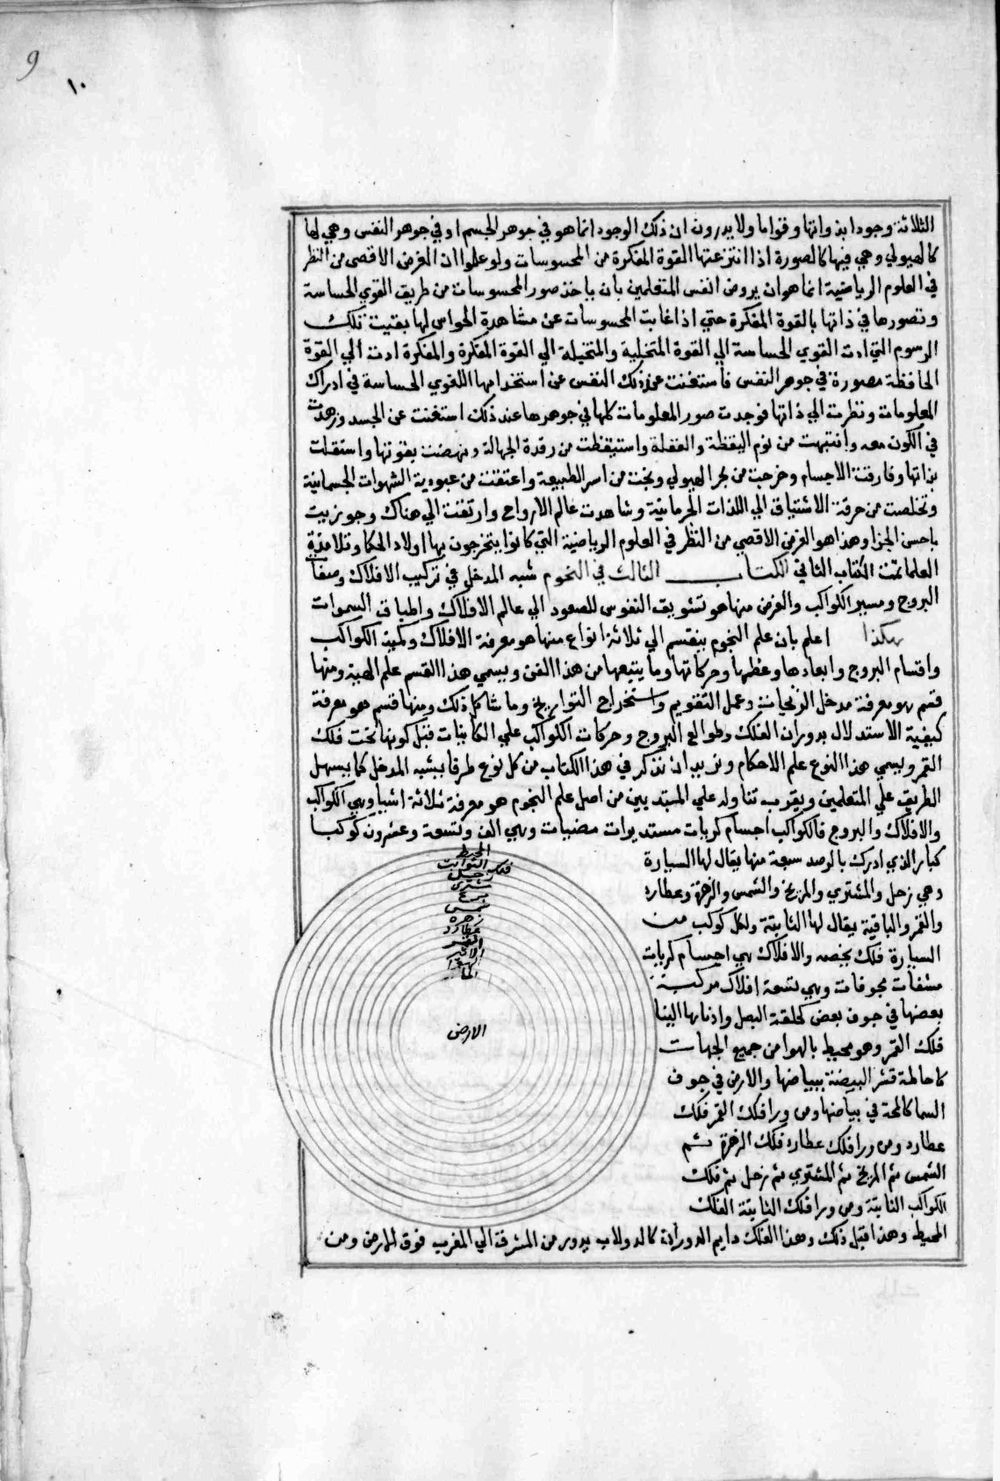 9
١٠
الثلاثة وجودا بذواتها وقواما ولا يدرون ان ذلك الوجود انما هو في جوهر الجسم او في جوهر النفس وهي لها
كالهيولي وهي فيها كالصورة اذا انتزعتها القوة المفكرة من المحسوسات ولو علموا ان الغرض الاقصى من النظر
في العلوم الرياضية انما هو ان يروض انفس المتعلمين بان ياخذ صور المحسوسات من طريق القوي الحساسة
وتصورها في ذاتها بالقوة المفكرة حتي اذا غابت المحسوسات عن مشاهدة الحواس لها بقيت تلك
الرسوم التي ادت القوي الحساسة الي القوة المتخيلة والمتخيلة الي القوة المفكرة والمفكرة ادت الي القوة
الحافظة مصورة في جوهر النفس فاستغنت عن ذلك النفس عن استخدامها للقوي الحساسة في ادراك
المعلومات ونظرت الي ذاتها فوجدت صور المعلومات كلها في جوهرها عند ذلك استغنت عن الجسد وزهدت
في الكون معه وانتبهت من نوم اليقظة والغفلة واستيقظت من رقدة الجهالة ونهضت بقوتها واستقلت
بذاتها وفارقت الاجسام وخرجت من بحر الهيولي ونجت من اسر الطبيعة واعتقت من عبودية الشهوات الجسمانية
وتخلصت من حرقة الاشتياق الي اللذات الجرمانية وشاهدت عالم الارواح وارتقت الي هناك وجوزيت
باحسن الجزا وهذا هو الغرض الاقصي من النظر في العلوم الرياضية التي كانوا يتخرجون بها اولاد الحكما وتلامذة
العلما تمت الكتاب الثاني الكتاب الثالث في النجوم شبه المدخل في تركيب الافلاك وصفا
البروج ومسير الكواكب والغرض منها هو تشويق النفوس للصعود الي عالم الافلاك واطباق السموات
هكذا اعلم بان علم النجوم ينقسم الي ثلاثة انواع منها هو معرفة الافلاك وكمية الكواكب
واقسام البروج وابعادها وعظمها وحركاتها وما يتبعها من هذا الفن ويسمي هذا القسم علم الهية ومنها
قسم هو معرفة مدخل الزيجات وعمل التقويم واستخراج التواريخ وما شاكل ذلك ومنها قسم هو معرفة
كيفية الاستدلال بدوران الفلك وطوالع البروج وحركات الكواكب علي الكاينات قبل كونها تحت فلك
القمر ويسمي هذا النوع علم الاحكام ونريد ان نذكر في هذا الكتاب من كل نوع طرفا يشبه المدخل كما يسهل
الطريق علي المتعلمين ويقرب تناوله علي المبتديين من اصل علم النجوم هو معرفة ثلاثة اشيا وهي الكواكب
والافلاك والبروج فالكواكب اجسام كريات مستديرات مضيات وهي الف وتسعة وعشرون كوكبا
كبار الذي ادرك بالرصد سبعة منها يقال لها السيارة
وهي زحل والمشتري والمريخ والشمس والزهرة وعطارد
والقمر والباقية يقال لها الثابتة ولكل كوكب من
السيارة فلك يخصه والافلاك هي اجسام كريات
مشفات مجوفات وهي تسعة افلاك مركبة
بعضها في جوف بعض كحلقة البصل وادناها الينا
فلك القمر وهو محيط بالهوا من جميع الجهات
كاحاطة قشر البيضة ببياضها والارض في جوف
السما كالمحة في بياضها ومن ورا فلك القمر فلك
عطارد ومن ورا فلك عطارد فلك الزهرة ثم
الشمس ثم المريخ ثم المشتري ثم زحل ثم فلك
الكواكب الثابتة ومن ورا فلك الثابتة الفلك
المحيط وهذا قبل ذلك وهذا الفلك دايم الدوران كالدولاب يدور من المشرق الي المغرب فوق الارض ومن
المحيط
فلك الثوابت
زحل
مشتري
مريخ
شمس
زهره
عطارد
القمر
الهوا
الما
الارض